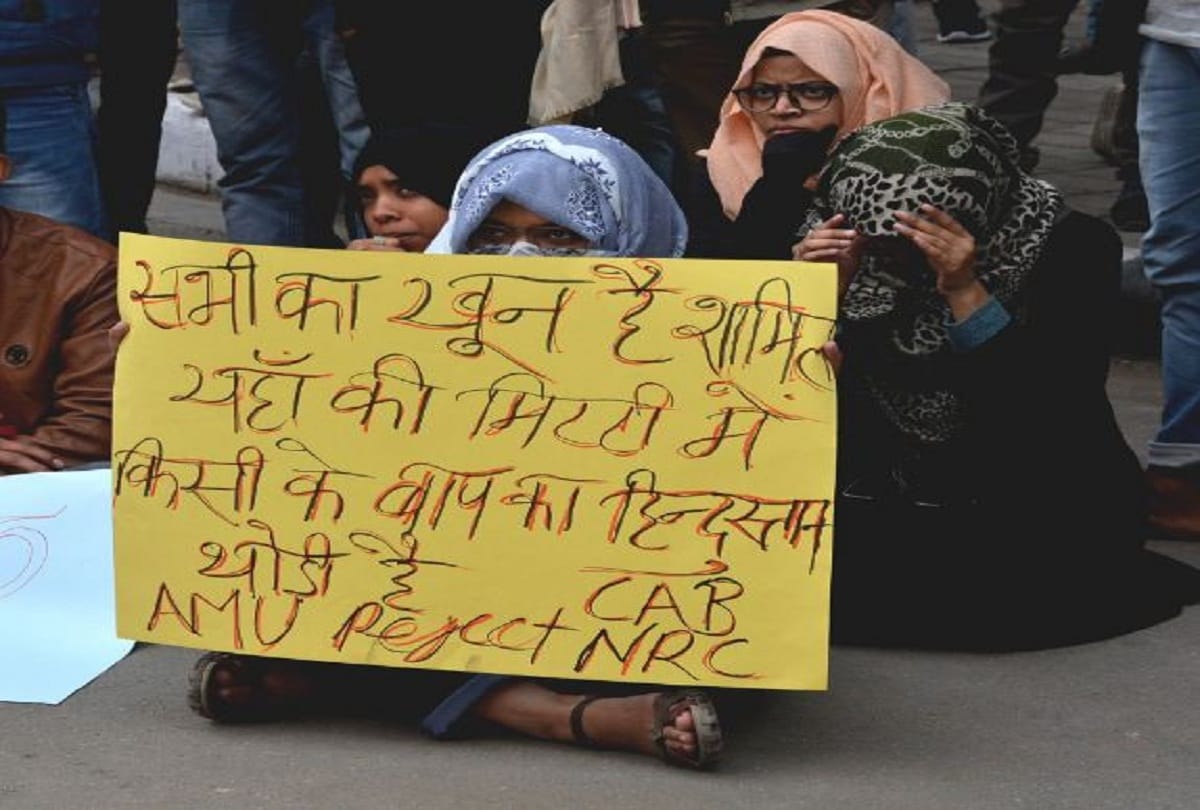 सभी का खून है शामिल
यहाँ की मिटटी में
किसी के बाप का हिन्दुस्तान
थोडी है
CAB
AMU Reject NRC